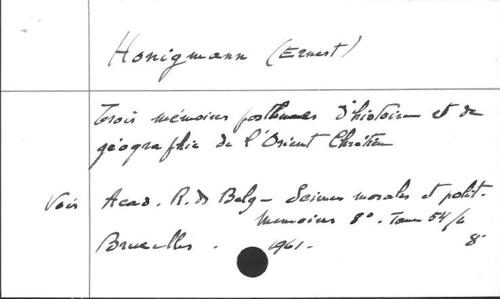 Honigmann (Ernest)
Trois mémoires posthumes d'histoire et de
géographie de l'Orient Chrétien
Voir Acad. R. de Belg - Sciences morales et polit.
Memoires 8° - Tome 54/6
Bruxelles . 1961. 8°